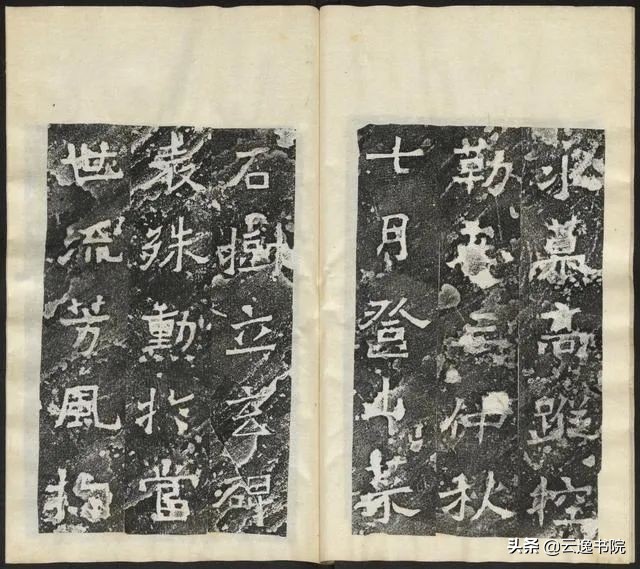 永慕高蹤控
勒在三仲秋
七月登山菜
石樹立玄碑
表殊勳於當
世流芳風於
头条 @云逸书院